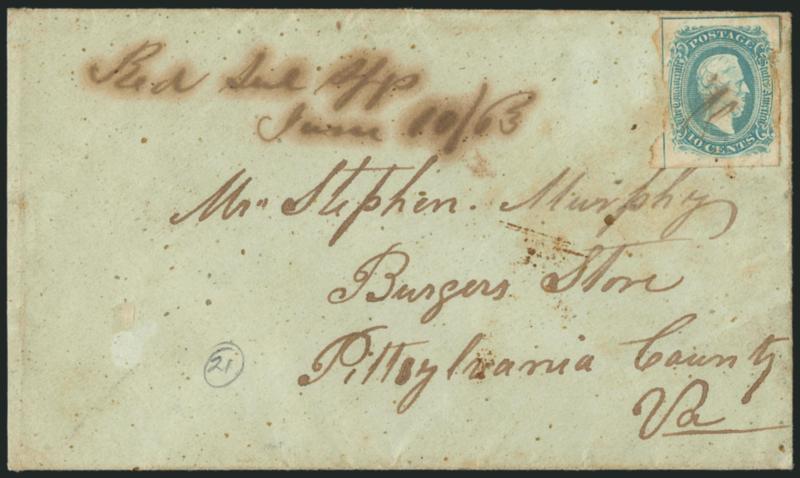 POSTAGE
The Confederate States of America
10 CENTS
Red Sul Spgs
June 10/63
Mrs Stephen. Murphy
Burgers Store
Pittsylvania County
Va
21